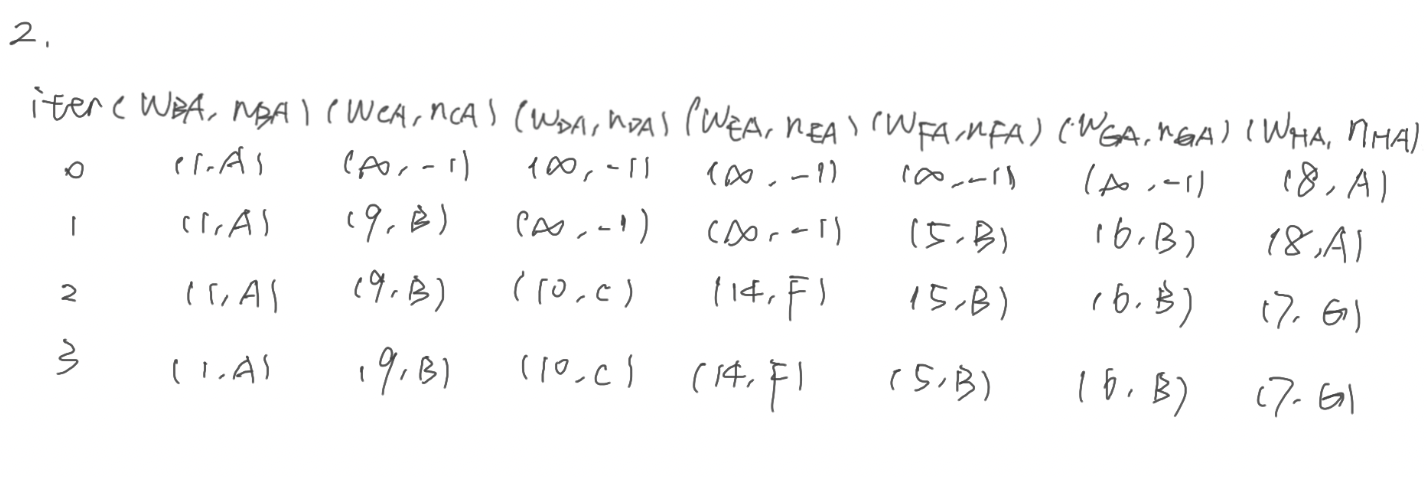 2.
iter (WBA, nBA) (WCA, nCA) (WDA, nDA) (WEA, nEA) (WFA, nFA) (WGA, nGA) (WHA, nHA)
0 (1, A) (∞, -1) (∞, -1) (∞, -1) (∞, -1) (∞, -1) (8, A)
1 (1, A) (9, B) (∞, -1) (∞, -1) (5, B) (6, B) (8, A)
2 (1, A) (9, B) (10, C) (14, F) (5, B) (6, B) (7, G)
3 (1, A) (9, B) (10, C) (14, F) (5, B) (6, B) (7, G)